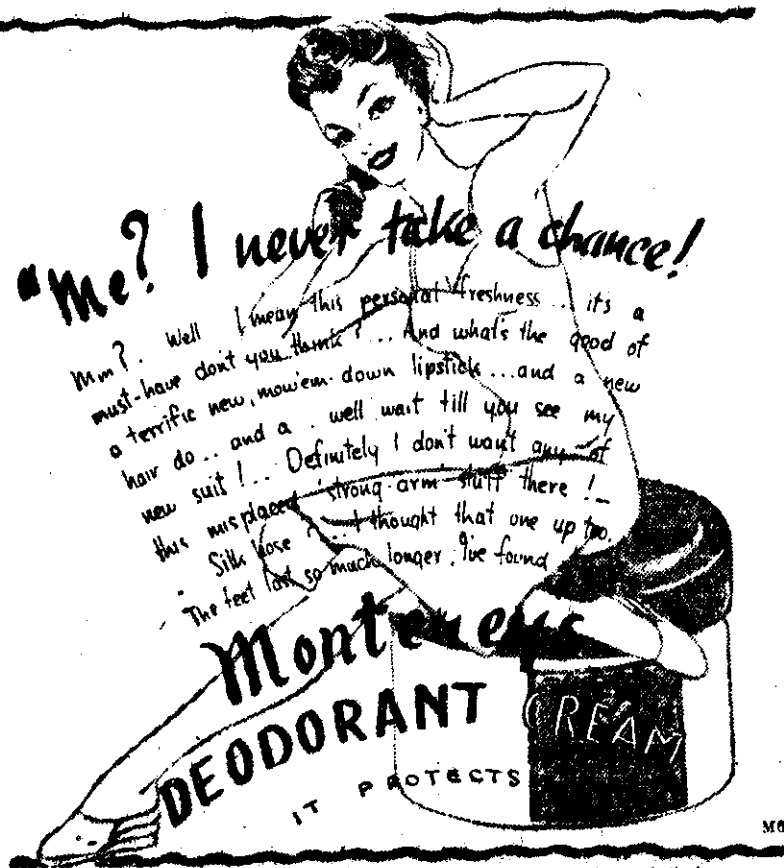 "Me? I never take a chance!
Mm? . Well I mean this personal freshness . . it's a
must-have don't you think? ... And what's the good of
a terrific new, mow'em-down lipstick ... and a new
hair do .. and a . well wait till you see my
new suit! .. Definitely I don't want any of
this misplaced 'strong-arm' stuff there !_
. Silk hose? ... I thought that one up too.
The feet last so much longer. I've found
Monteneys
DEODORANT CREAM
IT PROTECTS